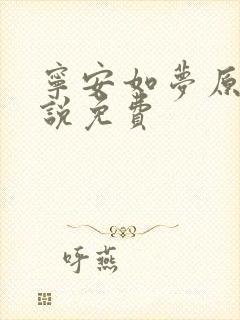 寧安如夢原
說免費
呼燕